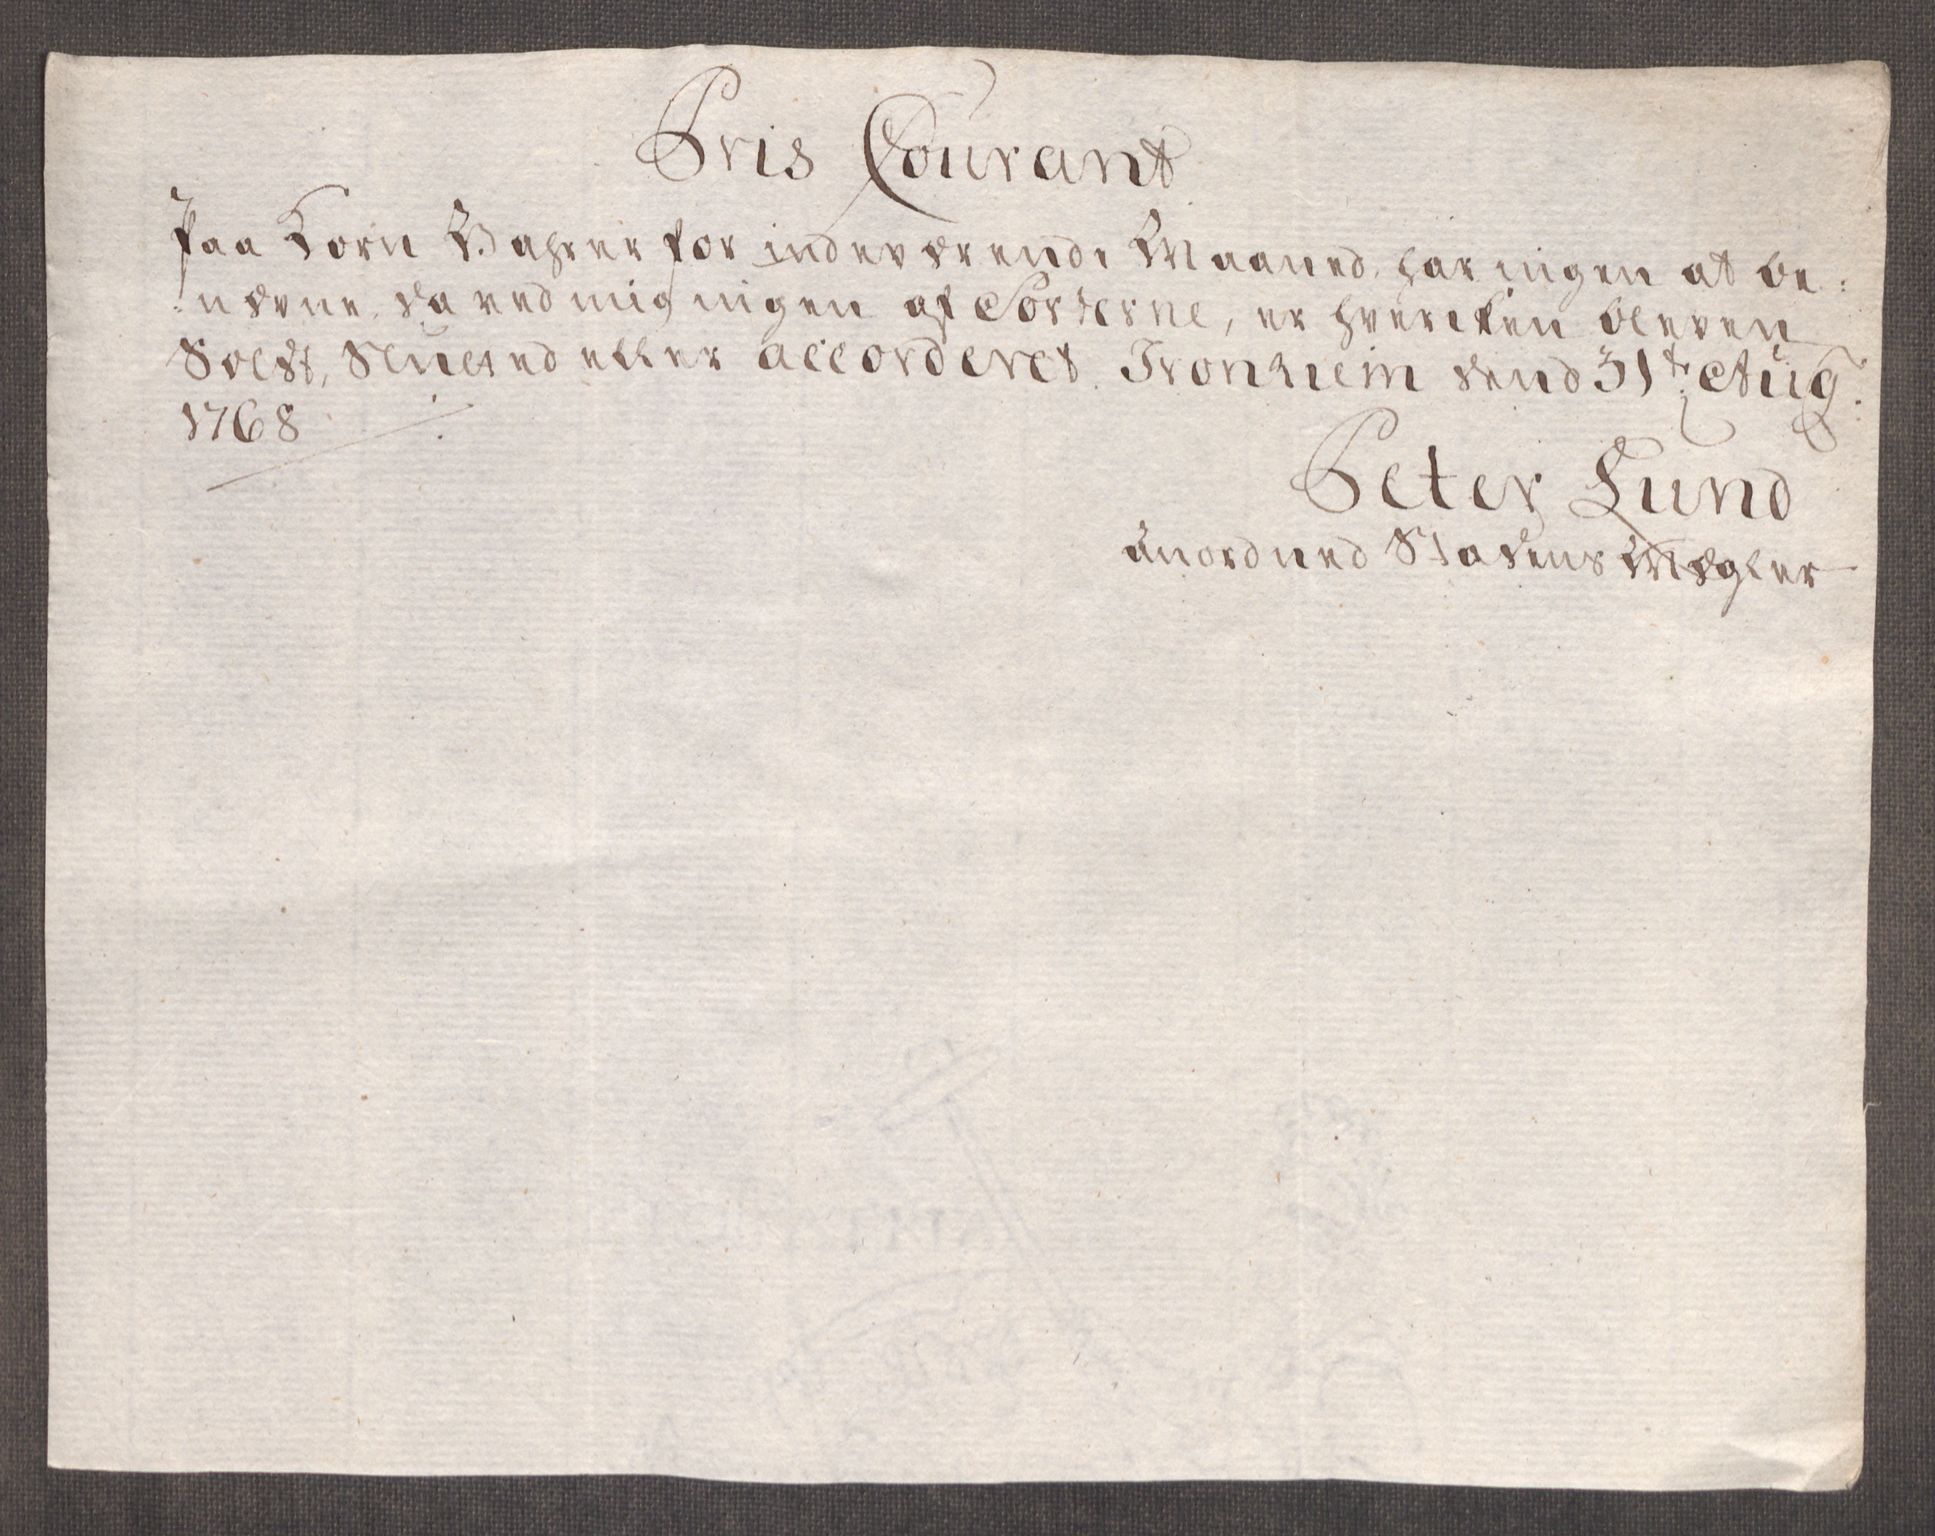 Pris Courant
Paa Korn Vahrer for indeværende Maaned, har ingen at be:
:nævne, da ved mig ingen af Sorterne, er hvercken bleven
Solgt, Slutted eller accorderet. Tronhiem dend 31te Aug:
1768
Peter Lund
anordned Stadens Mægler